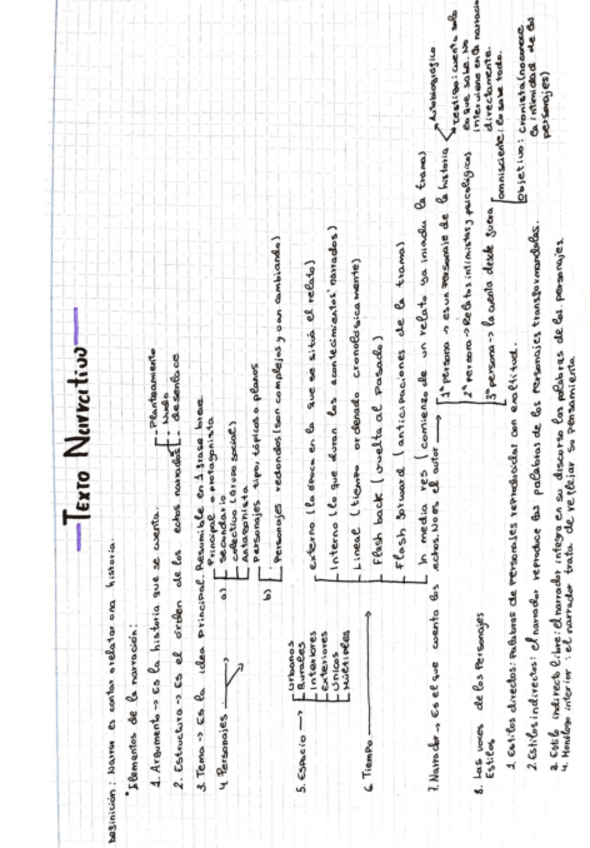 TEXTO Narrativo
Definición: Narrar es contar o relatar una historia.
Elementos de la narración:
1. Argumento -> Es la historia que se cuenta.
2. Estructura -> Es el orden de los echos narrados
- Planteamiento
- Nudo
- desenlace
3. Tema -> Es la idea principal. Resumible en 1 frase breve.
4 Personajes
a)
Principal o protagonista
Secundario
colectivo (Grupo social)
Antagonista
b)
Personajes tipo, tópicos o planos
Personajes redondos (son complejos y van cambiando)
5. Espacio ->
Urbanos
Rurales
Interiores
Exteriores
Únicos
Múltiples
6 Tiempo
externo (la época en la que se sitúa el relato)
Interno (lo que duran los acontecimientos narrados)
Lineal (tiempo ordenado cronológicamente)
Flash back (vuelta al pasado)
Flash forward (anticipaciones de la trama)
In media res (comienzo de un relato ya iniciada la trama)
7. Narrador -> Es el que cuenta los echos. No es el autor
1ª persona -> es un personaje de la historia
Autobiográfico
testigo: cuenta solo
lo que sabe. No
interviene en la narración
directamente.
2ª persona -> Relatos intimistas y psicológicos
3ª persona -> la cuenta desde fuera
omnisciente: lo sabe todo.
objetivo: cronista (no conoce
la intimidad de los
personajes)
8. Las voces de los Personajes
Estilos
1. Estilos directos: Palabras de personajes reproducidas con exactitud.
2. Estilos indirectos: el narrador reproduce las palabras de los personajes transformandolas.
3. Estilo indirecto libre: el narrador integra en su discurso las palabras de los personajes.
4. Monólogo interior: el narrador trata de reflejar su pensamiento.